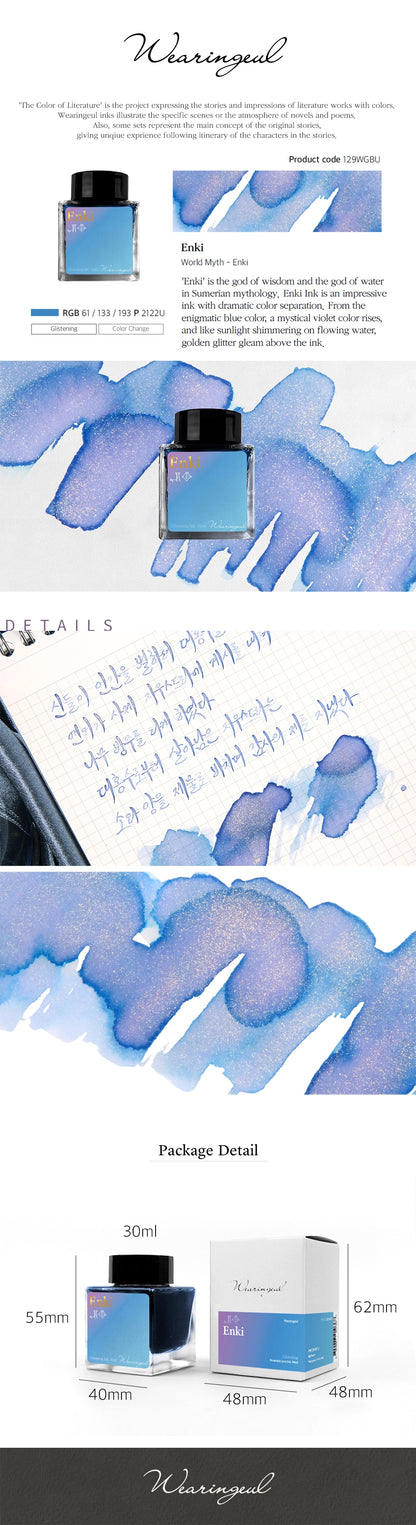 Wearingeul
'The Color of Literature' is the project expressing the stories and impressions of literature works with colors,
Wearingeul inks illustrate the specific scenes or the atmosphere of novels and poems.
Also, some sets represent the main concept of the original stories,
giving unqiue exprience following itinerary of the characters in the stories.
Product code 129WGBU
Enki
Wearingeul
Enki
World Myth - Enki
'Enki' is the god of wisdom and the god of water
in Sumerian mythology. Enki Ink is an impressive
ink with dramatic color separation. From the
enigmatic blue color, a mystical violet color rises,
and like sunlight shimmering on flowing water,
golden glitter gleam above the ink.
RGB 61 / 133 / 193 P 2122U
Glistening
Color Change
Enki
Wearingeul
DETAILS
신들이 인간을 벌하며 대홍
엔키가 사제 지우수드라에 계시를 내려
나무 방주를 타게 하였다
대홍수로부터 살아남은 지우수드라는
소와 양을 제물로 바치며 감사의 제를 지냈다
Package Detail
30ml
55mm
40mm
Enki
Wearingeul
Wearingeul
Enki
62mm
48mm
48mm
Wearingeul